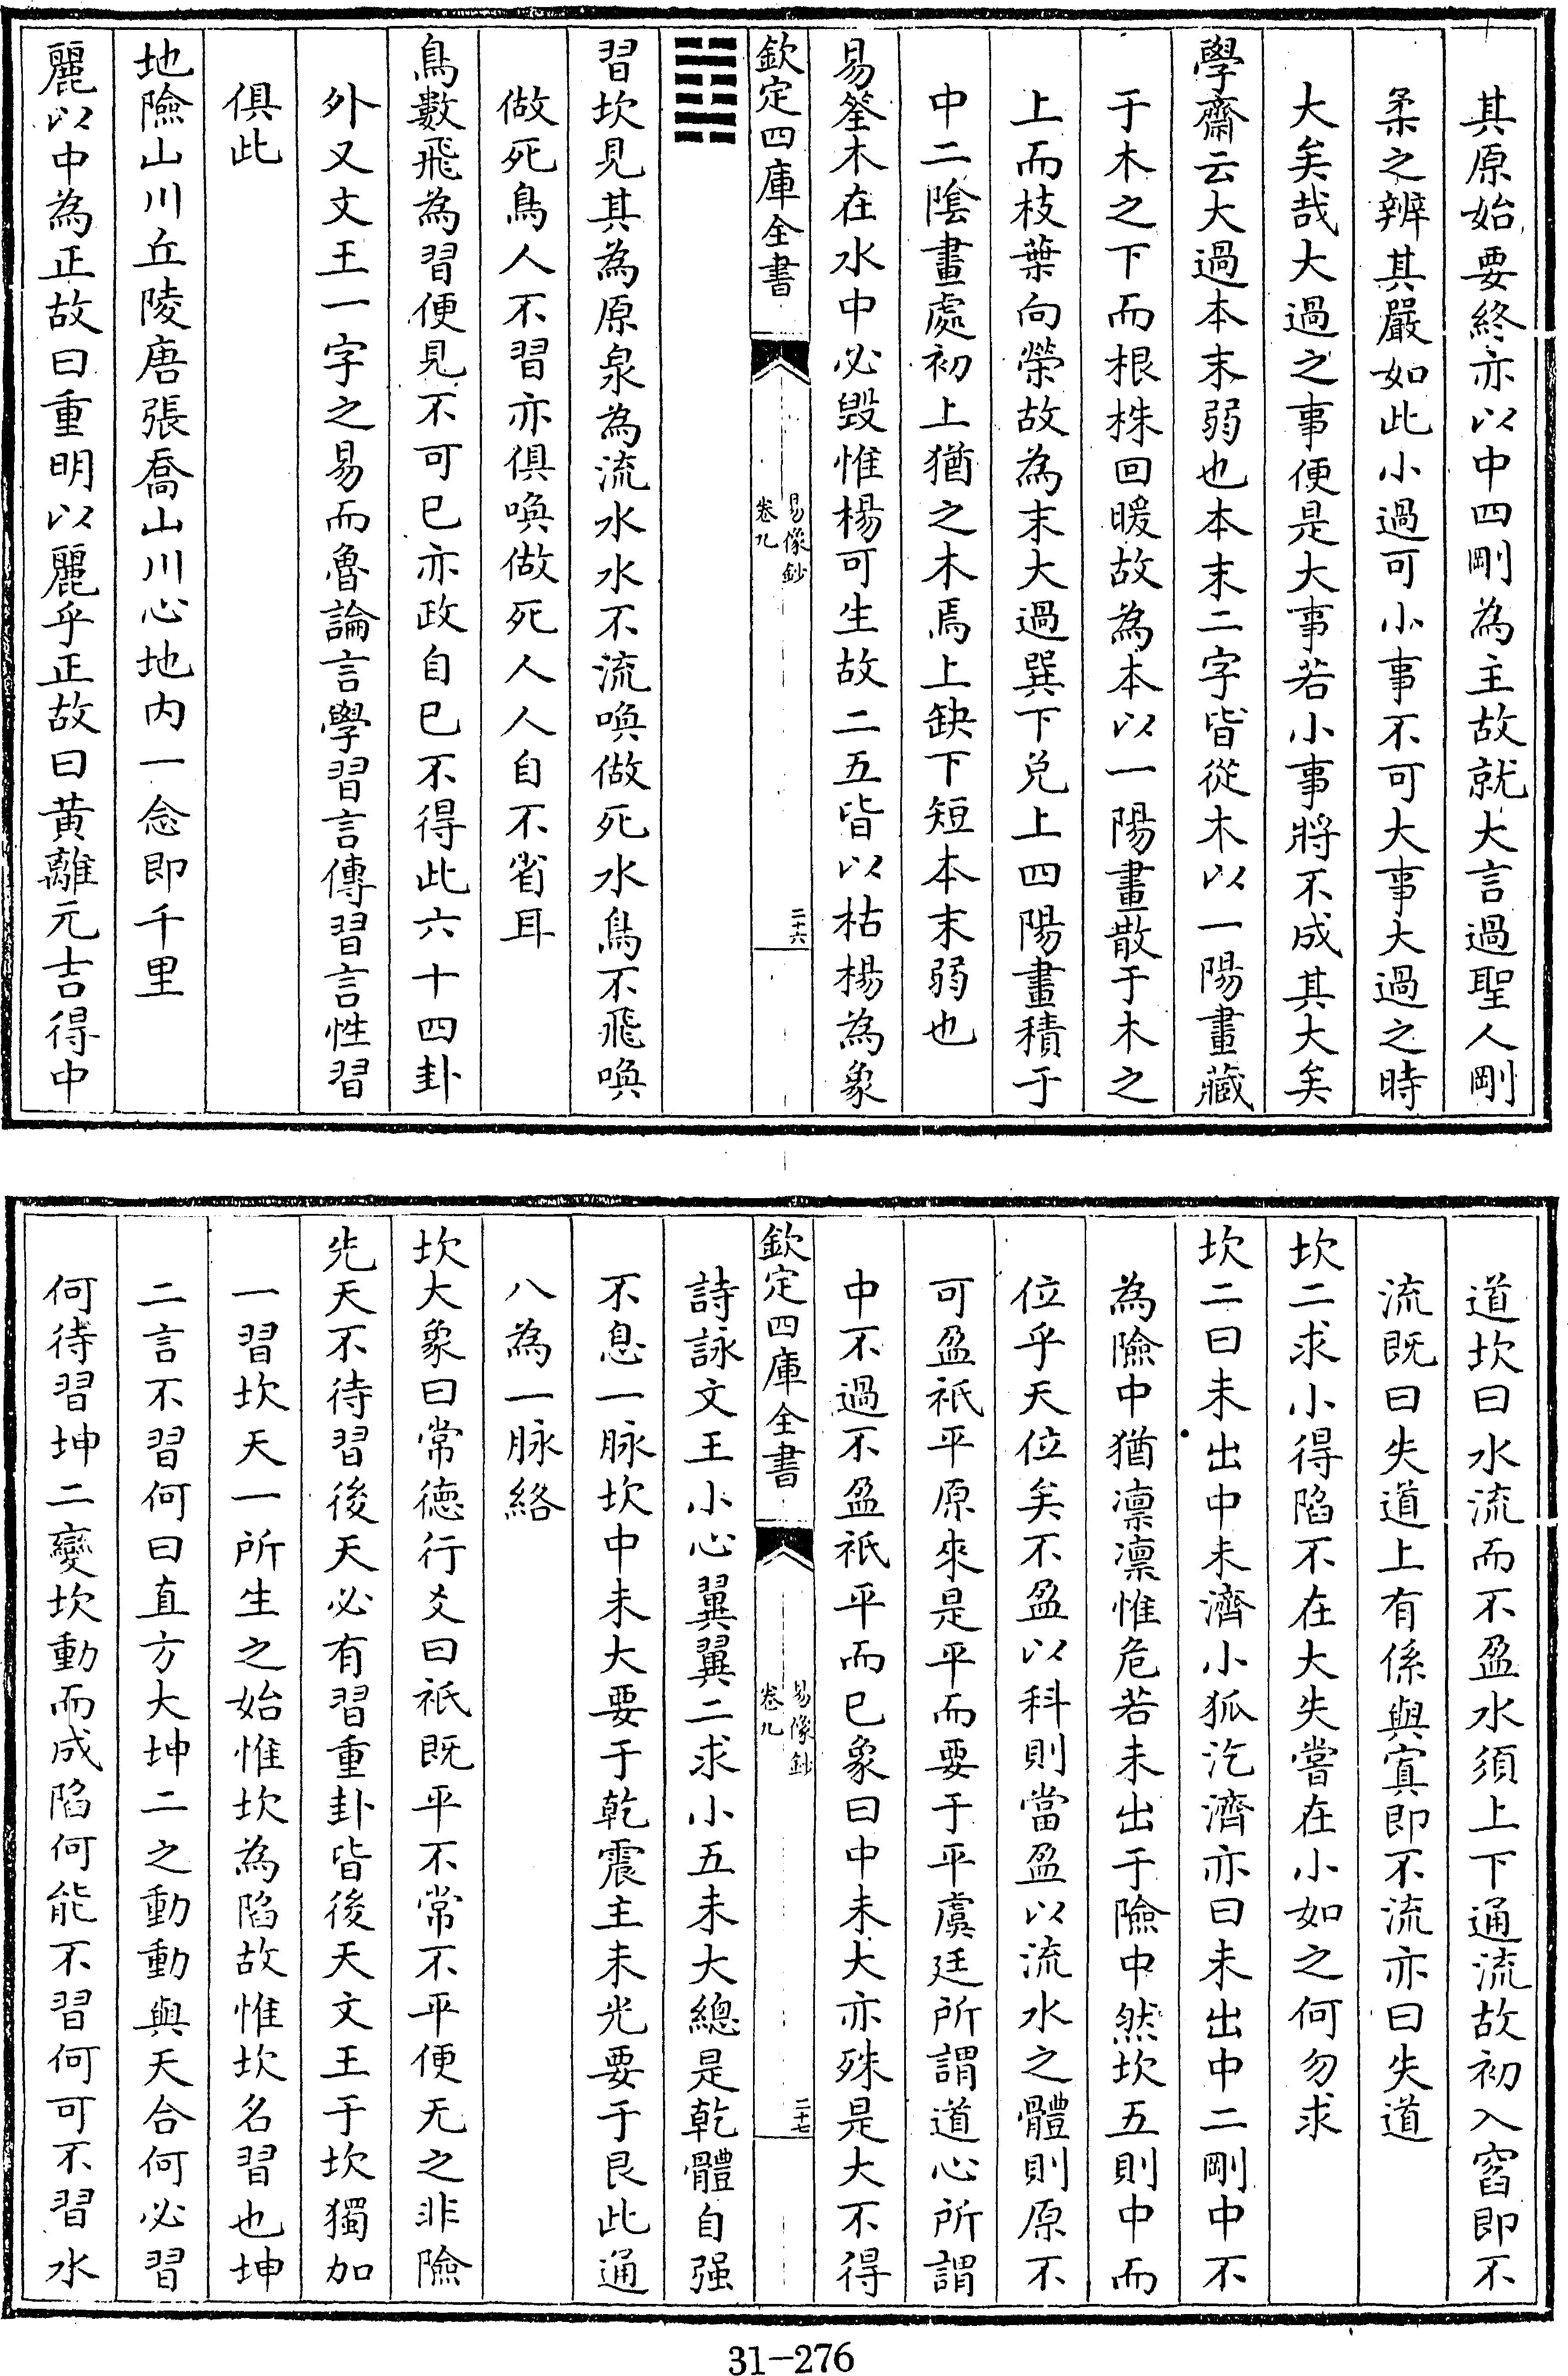 其原始要終亦以中四剛為主故就大言過聖人剛
柔之辨其嚴如此小過可小事不可大事大過之時
大矣哉大過之事便是大事若小事將不成其大矣
學齋云大過本末弱也本末二字皆從木以一陽畫藏
于木之下而根株回暖故為本以一陽畫散于木之
上而枝葉向榮故為末大過巽下兌上四陽畫積于
中二陰畫處初上猶之木焉上缺下短本末弱也
易筌木在水中必毀惟楊可生故二五皆以枯楊為象
欽定四庫全書
易像鈔
卷九
二十六
習坎見其為原泉為流水水不流喚做死水鳥不飛喚
做死鳥人不習亦俱喚做死人人自不省耳
鳥數飛為習便見不可已亦政自已不得此六十四卦
外又文王一字之易而魯論言學習言傳習言性習
俱此
地險山川丘陵唐張喬山川心地內一念即千里
麗以中為正故曰重明以麗乎正故曰黄離元吉得中
道坎曰水流而不盈水須上下通流故初入窞即不
流既曰失道上有係與寘即不流亦曰失道
坎二求小得陷不在大失嘗在小如之何勿求
坎二曰未出中未濟小狐汔濟亦曰未出中二剛中不
為險中猶凛凛惟危若未出于險中然坎五則中而
位乎天位矣不盈以科則當盈以流水之體則原不
可盈祇平原來是平而要于平虞廷所謂道心所謂
中不過不盈祇平而已象曰中未大亦殊是大不得
欽定四庫全書
易像鈔
卷九
二十七
詩詠文王小心翼翼二求小五未大總是乾體自强
不息一脉坎中未大要于乾震主未光要于艮此通
八為一脉絡
坎大象曰常徳行爻曰祇既平不常不平便无之非險
先天不待習後天必有習重卦皆後天文王于坎獨加
一習坎天一所生之始惟坎為陷故惟坎名習也坤
二言不習何曰直方大坤二之動動與天合何必習
何待習坤二變坎動而成陷何能不習何可不習水
31-276